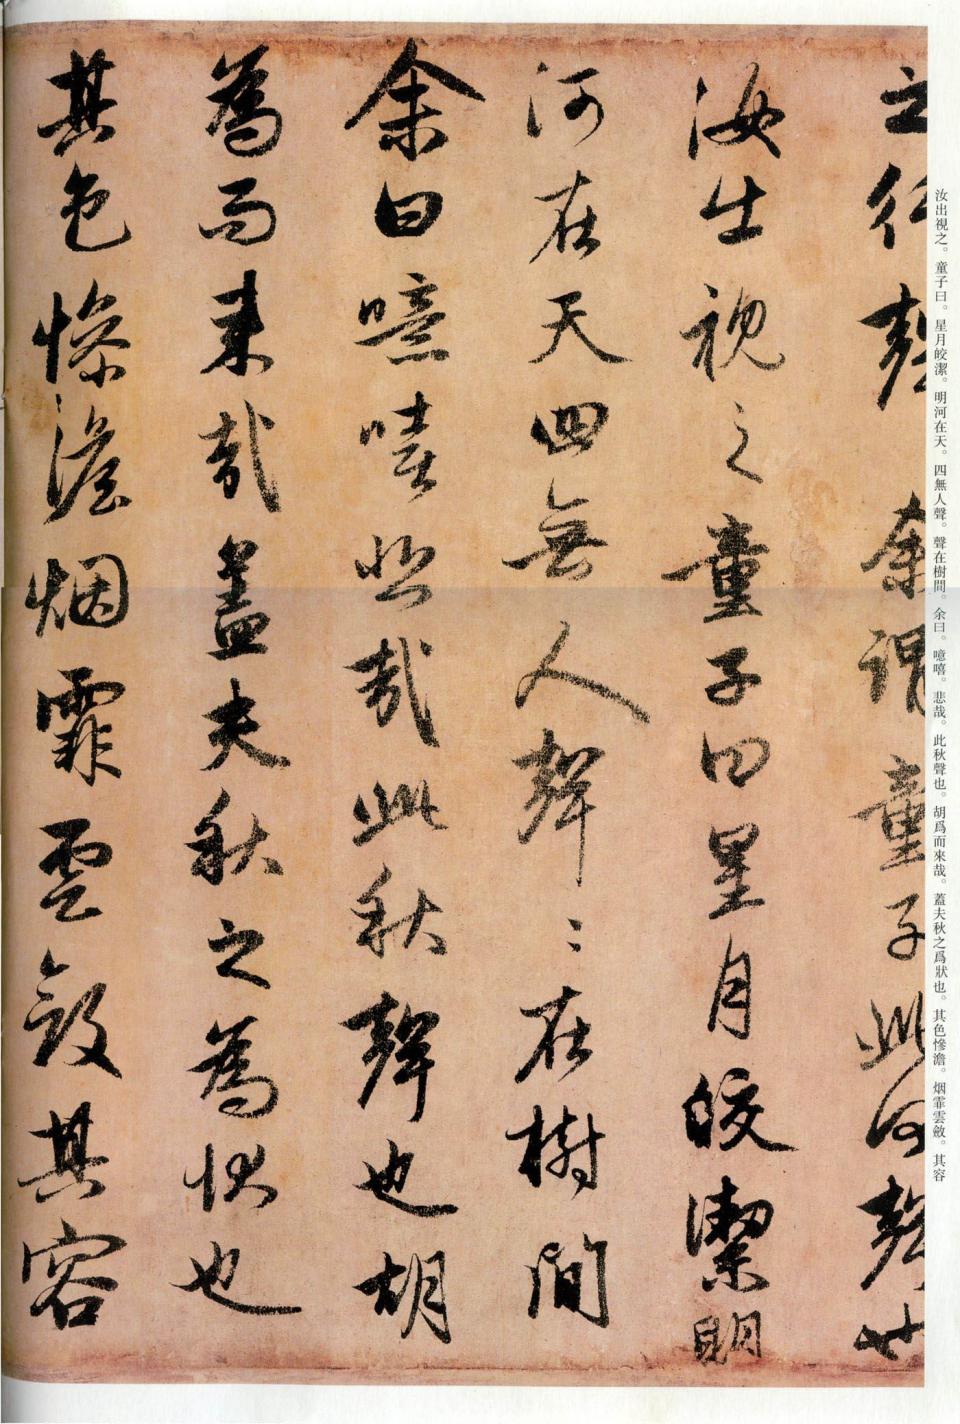 汝出視之。童子曰。星月皎潔。明河在天。四無人聲。聲在樹間。余曰。噫嘻。悲哉。此秋聲也。胡爲而來哉。蓋夫秋之爲狀也。其色慘澹。烟霏雲斂。其容
之行聲余謂童子此何聲也
汝出視之童子曰星月皎潔明
河在天四無人聲〻在樹間
余曰噫嘻悲哉此秋聲也胡
為而来哉蓋夫秋之為狀也
其色慘澹烟霏雲斂其容